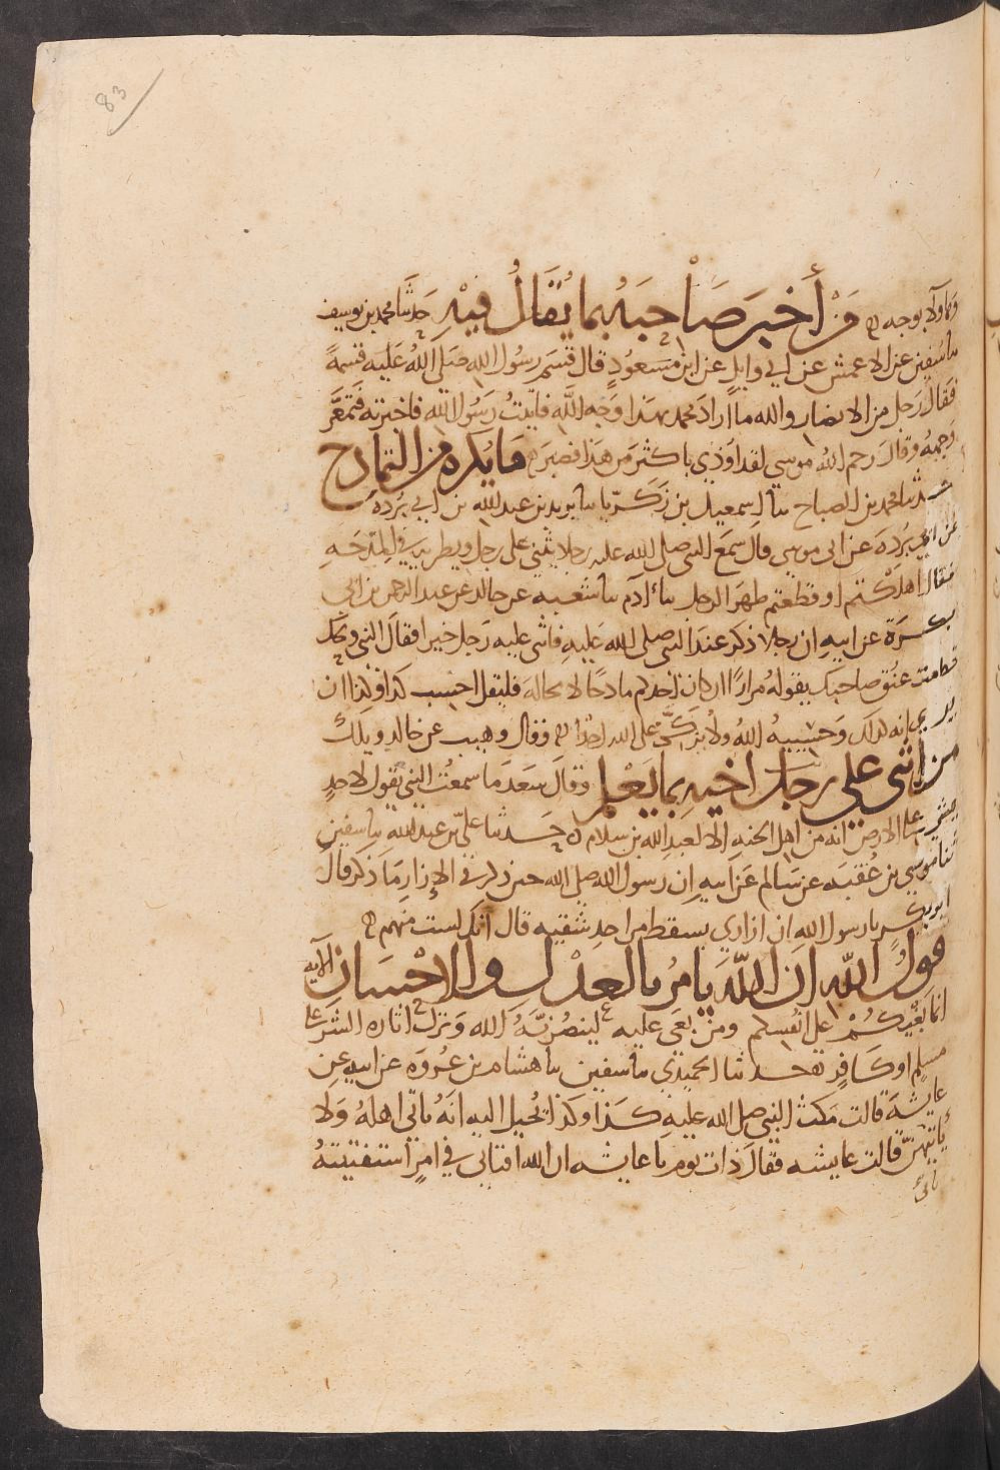 83
وهاولا بوجه من أخبر صاحبه بما يقال فيه حدثنا محمد بن يوسف
سا سفين عن الاعمش عن ابي وايل عن ابن مسعود قال قسم رسول الله صلى الله عليه قسمة
فقال رجل من الانصار والله ما اراد محمد بهذا وجه الله فاتيت رسول الله فاخبرته فتمعر
وجهه وقال رحم الله موسى لقد اوذي باكثر من هذا فصبر ما يكره من التمادح
حدثنا محمد بن الصباح سا اسمعيل بن زكريا سا بريد بن عبد الله بن ابي برده
عن ابي بردة عن ابي موسى قال سمع النبي صلى الله عليه رجلا يثني على رجل ويطريه في المدحة
فقال اهلكتم او قطعتم ظهر الرجل سا ادم سا شعبه عن خالد عن عبد الرحمن بن ابي
بكرة عن ابيه ان رجلا ذكر عند النبي صلى الله عليه فاثنى عليه رجل خيرا فقال النبي ويحك
قطعت عنق صاحبك يقوله مرارا ان كان احدكم مادحا لا محالة فليقل احسب كذا وكذا ان
يرى انه كذلك وحسيبه الله ولا يزكى على الله احدا وقال وهيب عن خالد ويلك
من اثنى على رجل اخيه بما يعلم وقال سعد ما سمعت النبي يقول لاحد
يمشي على الارض انه من اهل الجنه الا لعبد الله بن سلام حدثنا علي بن عبد الله سا سفين
ثنا موسى بن عقبه عن سالم عن ابيه ان رسول الله صلى الله حين ذكر في الازار ما ذكر قال
ابو بكر يا رسول الله ان ازاري يسقط من احد شقيه قال انك لست منهم
قول الله ان الله يامر بالعدل والاحسان الآيه
انما بغيكم على انفسكم ومن بغى عليه لينصرنه الله وترك اثاره الشر على
مسلم او كافر حدثنا الحميدي سا سفين سا هشام بن عروه عن ابيه عن
عايشة قالت مكث النبي صلى الله عليه كذا وكذا يخيل اليه انه ياتي اهله ولا
ياتيهن قالت عايشه فقال ذات يوم يا عايشه ان الله افتاني في امر استفتيته